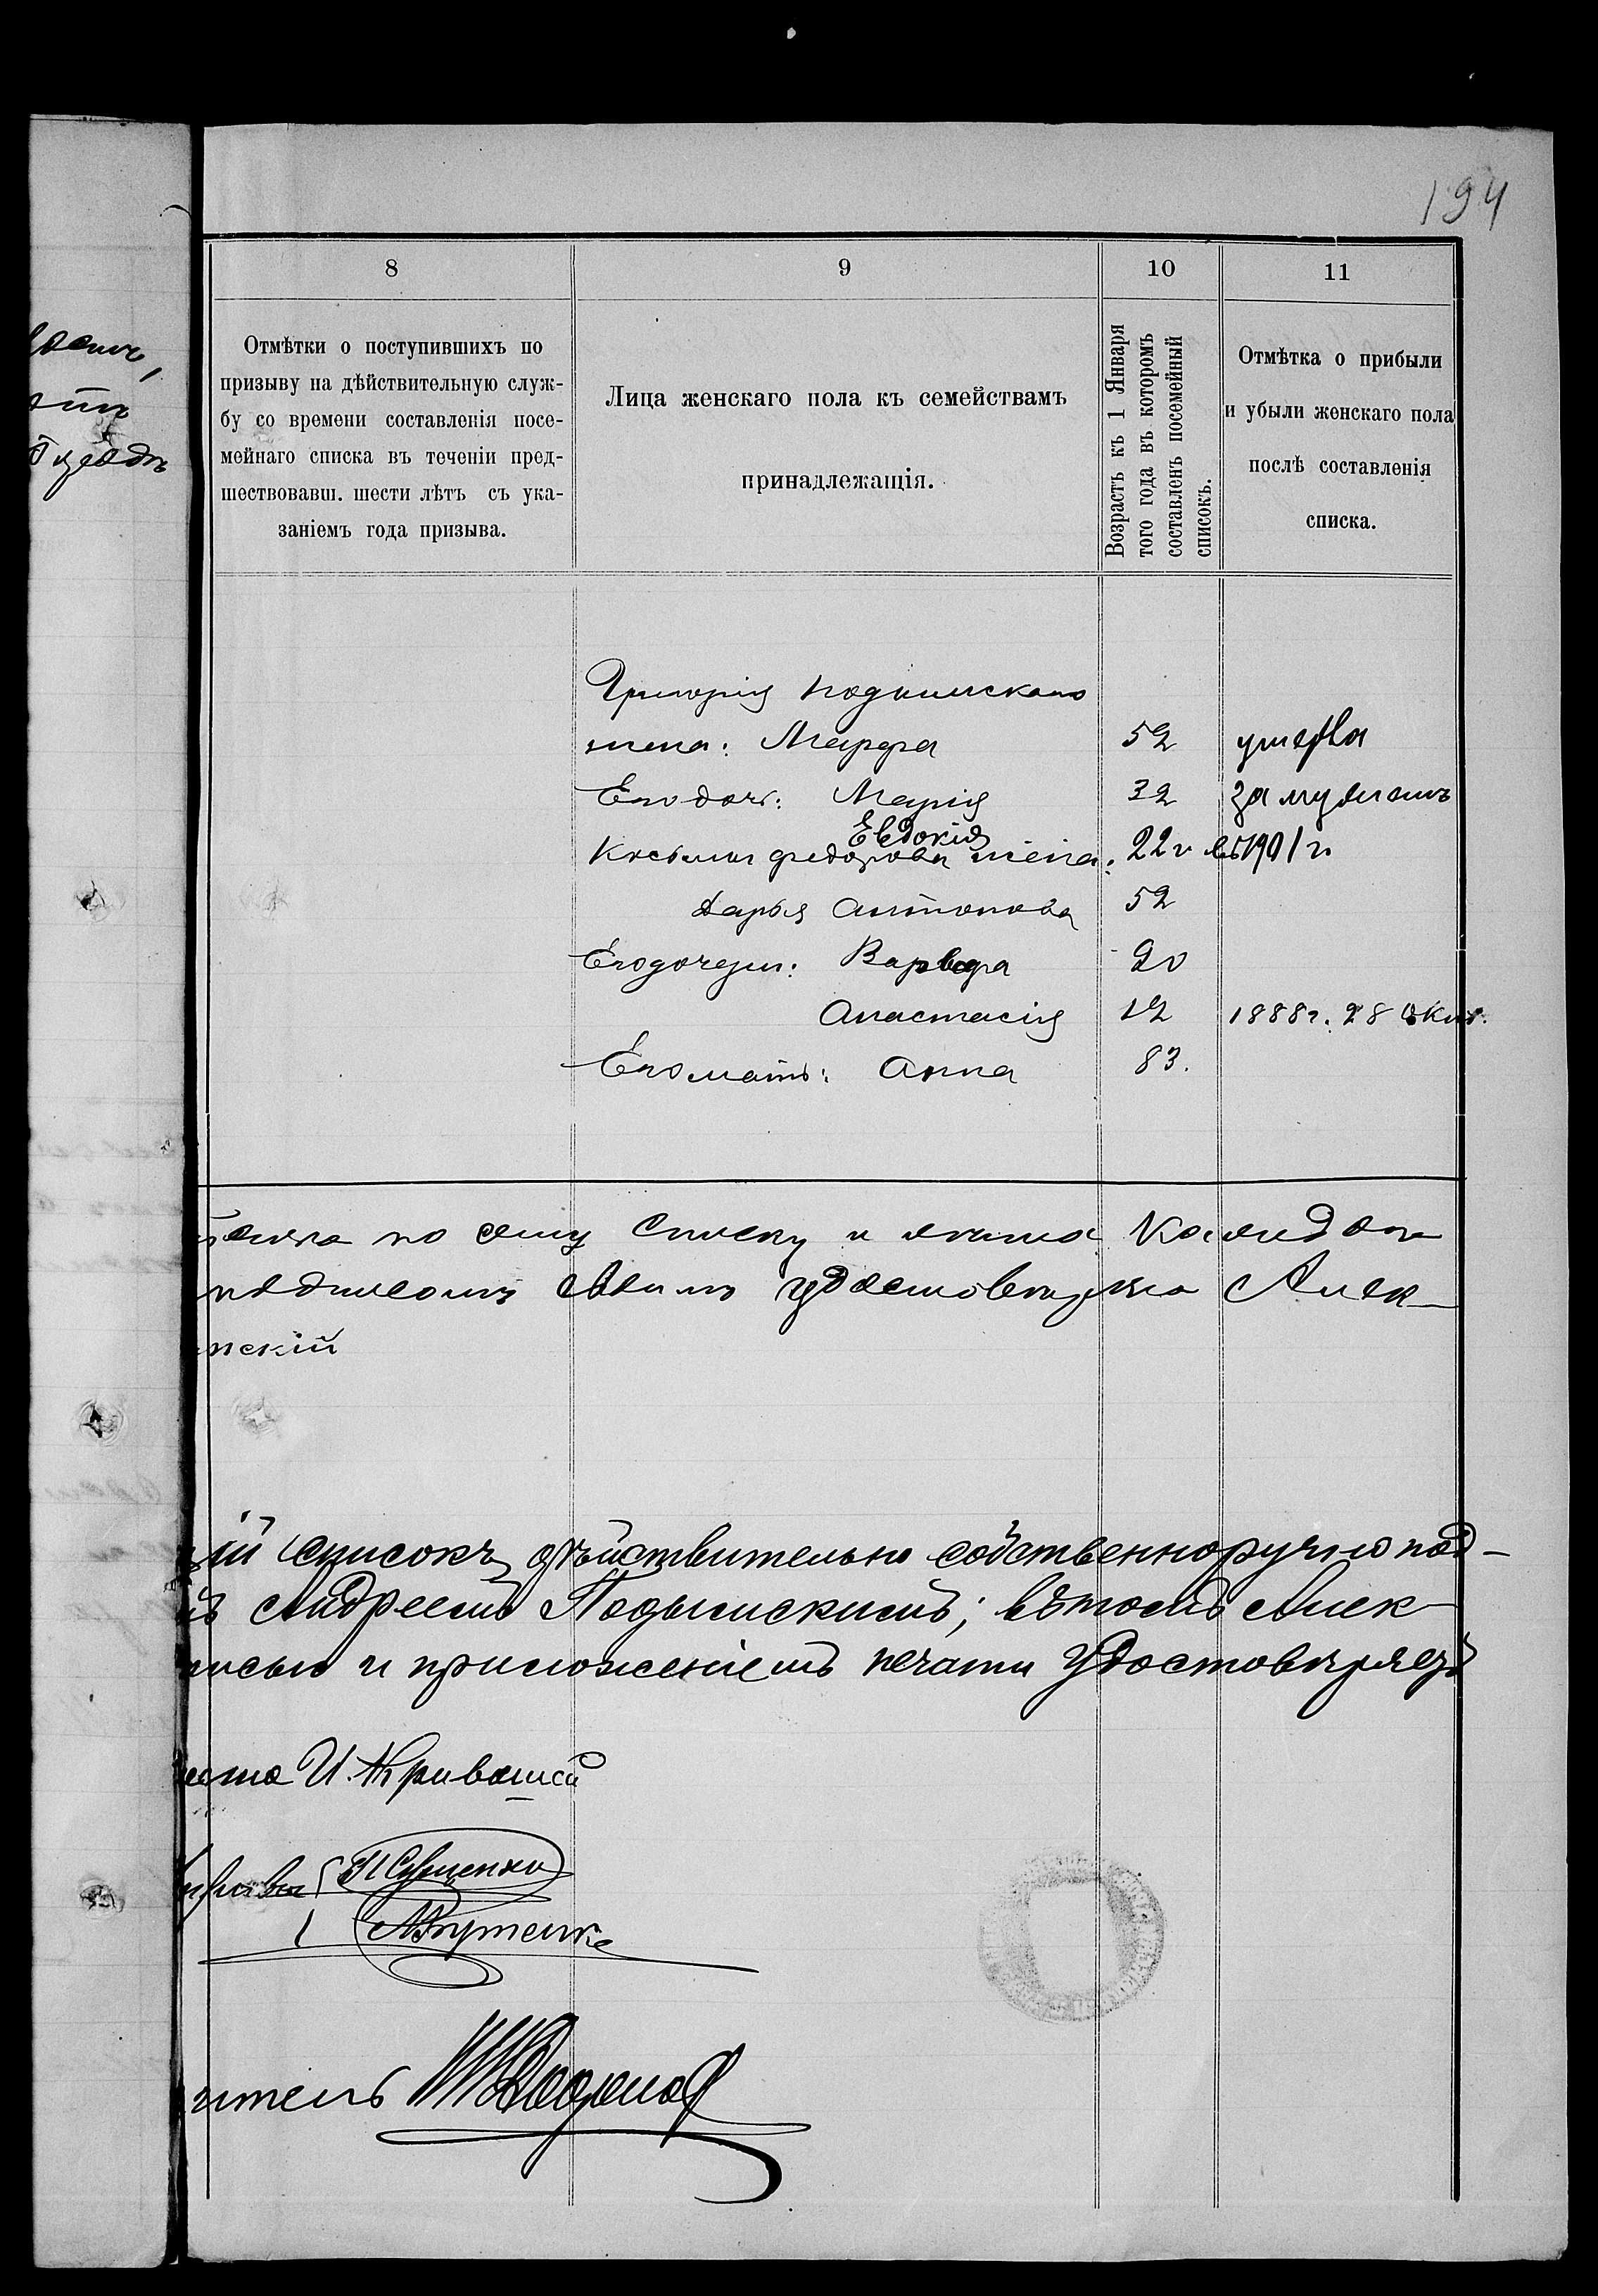 194
8
9
10
11
Отмѣтки о поступившихъ по
призыву на дѣйствительную служ-
бу со времени составленія посе-
мейнаго списка въ теченіи пред-
шествовавш. шести лѣтъ съ ука-
заніемъ года призыва.
Лица женскаго пола къ семействамъ
принадлежащія.
Возрастъ къ 1 Января
того года въ которомъ
составленъ посемейный
списокъ.
Отмѣтка о прибыли
и убыли женскаго пола
послѣ составленія
списка.
Григорія Подымскаго
жена: Марфа 52 умерла
Его дочь: Марія 32 замужемъ
Евдокія 22 г въ 1901 г
Косьмы Федорова жена:
Дарья Антонова 52
Его дочери: Варвара 20
Анастасія 12 1888 г. 28 Окт.
Его мать: Анна 83.
по сему списку и
удостовѣряю Алек-
нскій
ій списокъ дѣйствительно собственноручно под-
ъ Андреемъ Подымскимъ; въ томъ Алек-
писью и приложеніемъ печати удостовѣряетъ
И.
итель